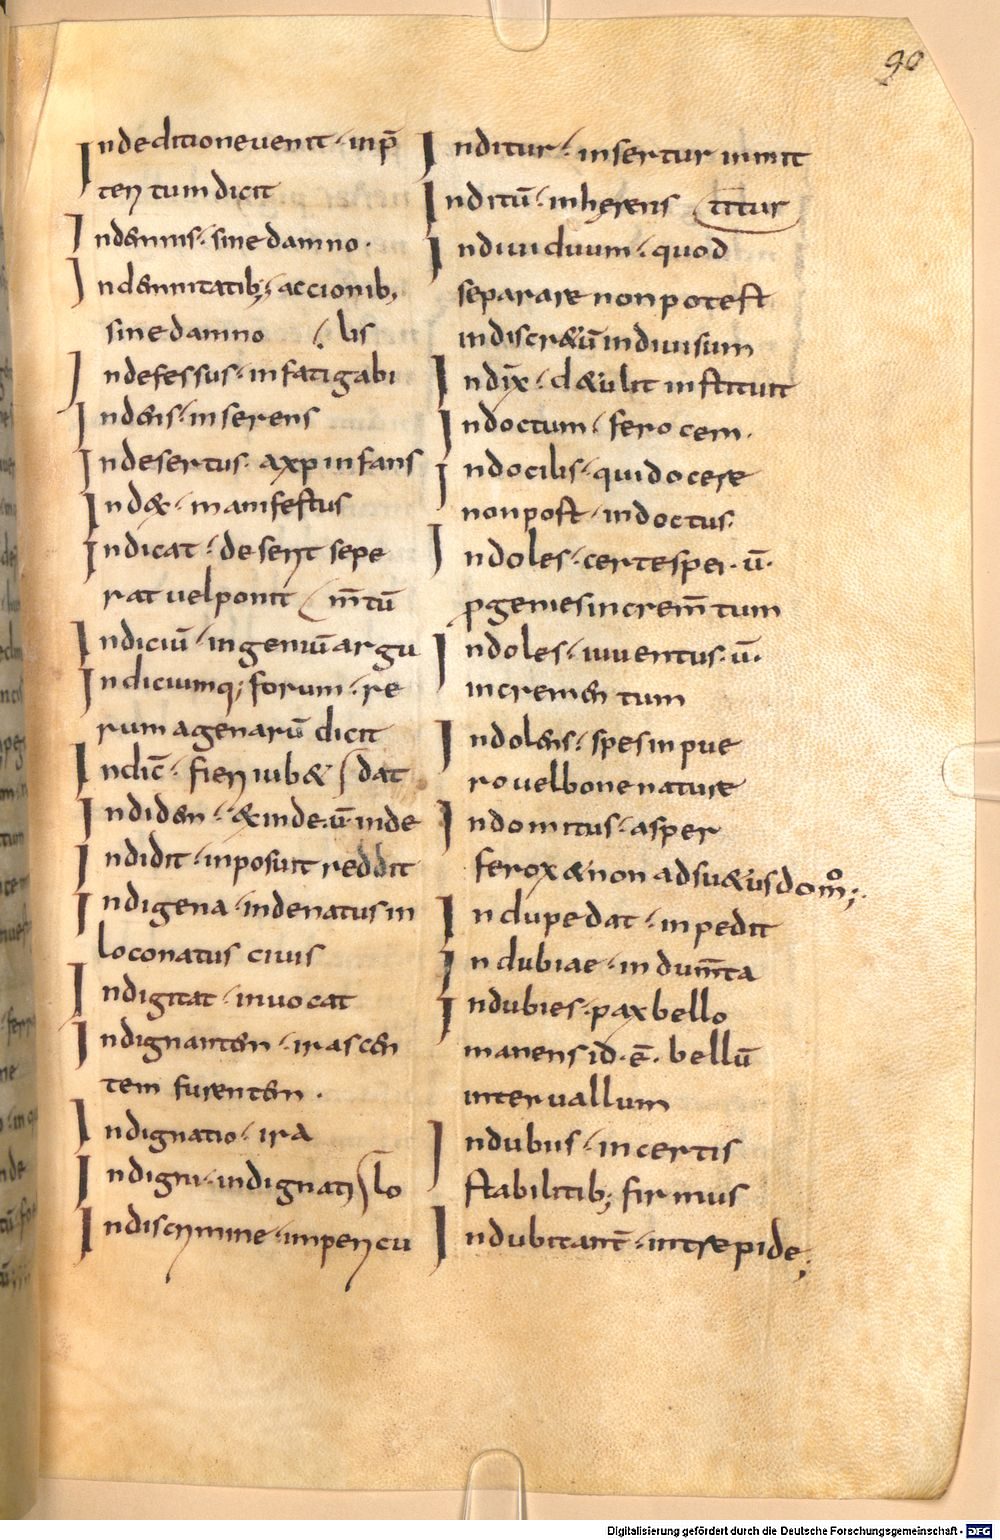 90
Indeditioneuenit · inp̄
teri tum dicit
Indemnis · sine damno ·
Indemnitatib; · accionib;
sine damno
Indefessus · infatigabi / lis
Indens · inserens
Indesertus · axp infans
Index · manifestus
Indicat · deserit sepe
rat uel ponit
Indiciū · ingeniū argu / m̄tū
Indiciumq; forum · re
rum agenarū dicit
Indic̄ · fieri iub&
Indidem · &inde · ū · inde / dat
Indidit · inposuit reddit
Indigena · indenatus in
loco natus ciuis
Indigitat · inuocat
Indignantem · irascen
tem furentem ·
Indignatio · ira
Indigni · indignati
Indiscrimine · in pericu / lo
Inditur · insertur inmit
Inditū · inherens / titur
Indiuiduum · quod
separare non potest
indiscr&ū indiuisum
Indix̄ · d&ulit instituit
Indoctum · ferocem ·
Indocilis · qui docere
non post · indoctus ·
Indoles · certe spei · ū ·
p̱genies increm̄tum
Indoles · iuuentus · ū ·
incrementum
Indolens · spes in pue
ro uel bone nature
Indomitus · asper
ferox & non adsu&us domo;
Indupedat · inpedit
Indubiae · indum̄ta
Indubies · pax bello
manens id · ē · bellū
interuallum
Indubiis · incertis
stabilitib; firmus
Indubitant̄ · intrepide;
Digitalisierung gefördert durch die Deutsche Forschungsgemeinschaft - DFG